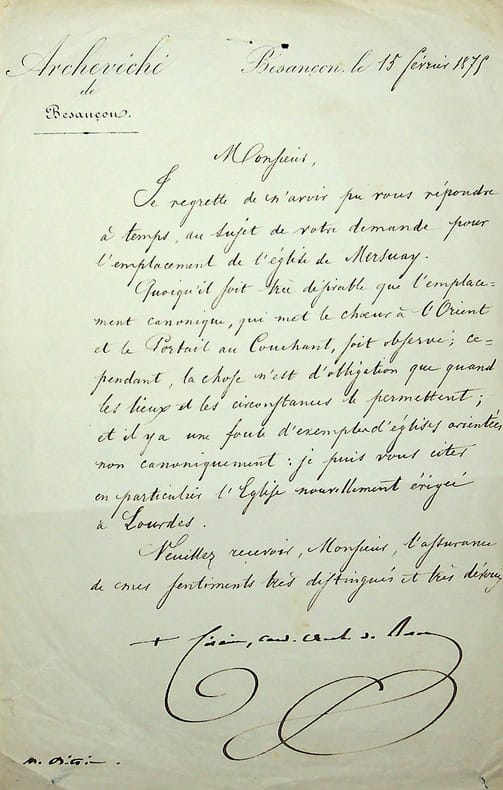 Archevêché
de
Besançon.
Besançon, le 15 février 1875
Monsieur,
Je regrette de n'avoir pu vous répondre
à temps, au sujet de votre demande pour
l'emplacement de l'église de Mersuay.
Quoiqu'il soit très désirable que l'emplace-
ment canonique, qui met le chœur à l'Orient
et le Portail au Couchant, soit observé; ce-
pendant, la chose n'est d'obligation que quand
les lieux et les circonstances le permettent;
et il y a une foule d'exemples d'églises orientées
non canoniquement: je puis vous citer
en particulier l'Eglise nouvellement érigée
à Lourdes.
Veuillez recevoir, Monsieur, l'assurance
de mes sentiments très distingués et très dévoués
+ Césaire, card. arch. de Bes